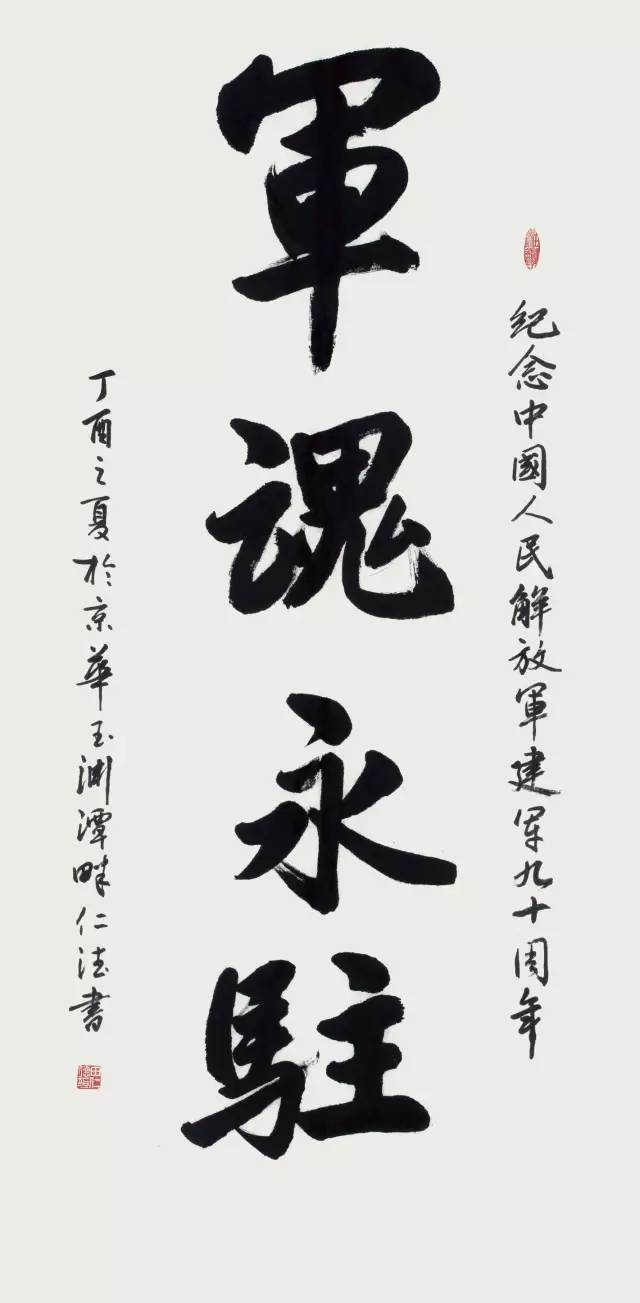 紀念中國人民解放軍建軍九十周年
軍魂永駐
丁酉之夏於京華玉渊潭畔仁法書